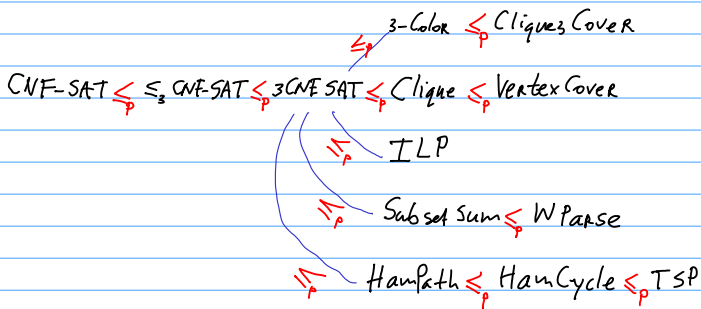 ≤ₚ 3-Color ≤ₚ Clique3Cover
CNF-SAT ≤ₚ ≤₃ CNF-SAT ≤ₚ 3CNF SAT ≤ₚ Clique ≤ₚ VertexCover
≤ₚ ILP
≤ₚ Subset Sum ≤ₚ WParse
≤ₚ HamPath ≤ₚ HamCycle ≤ₚ TSP